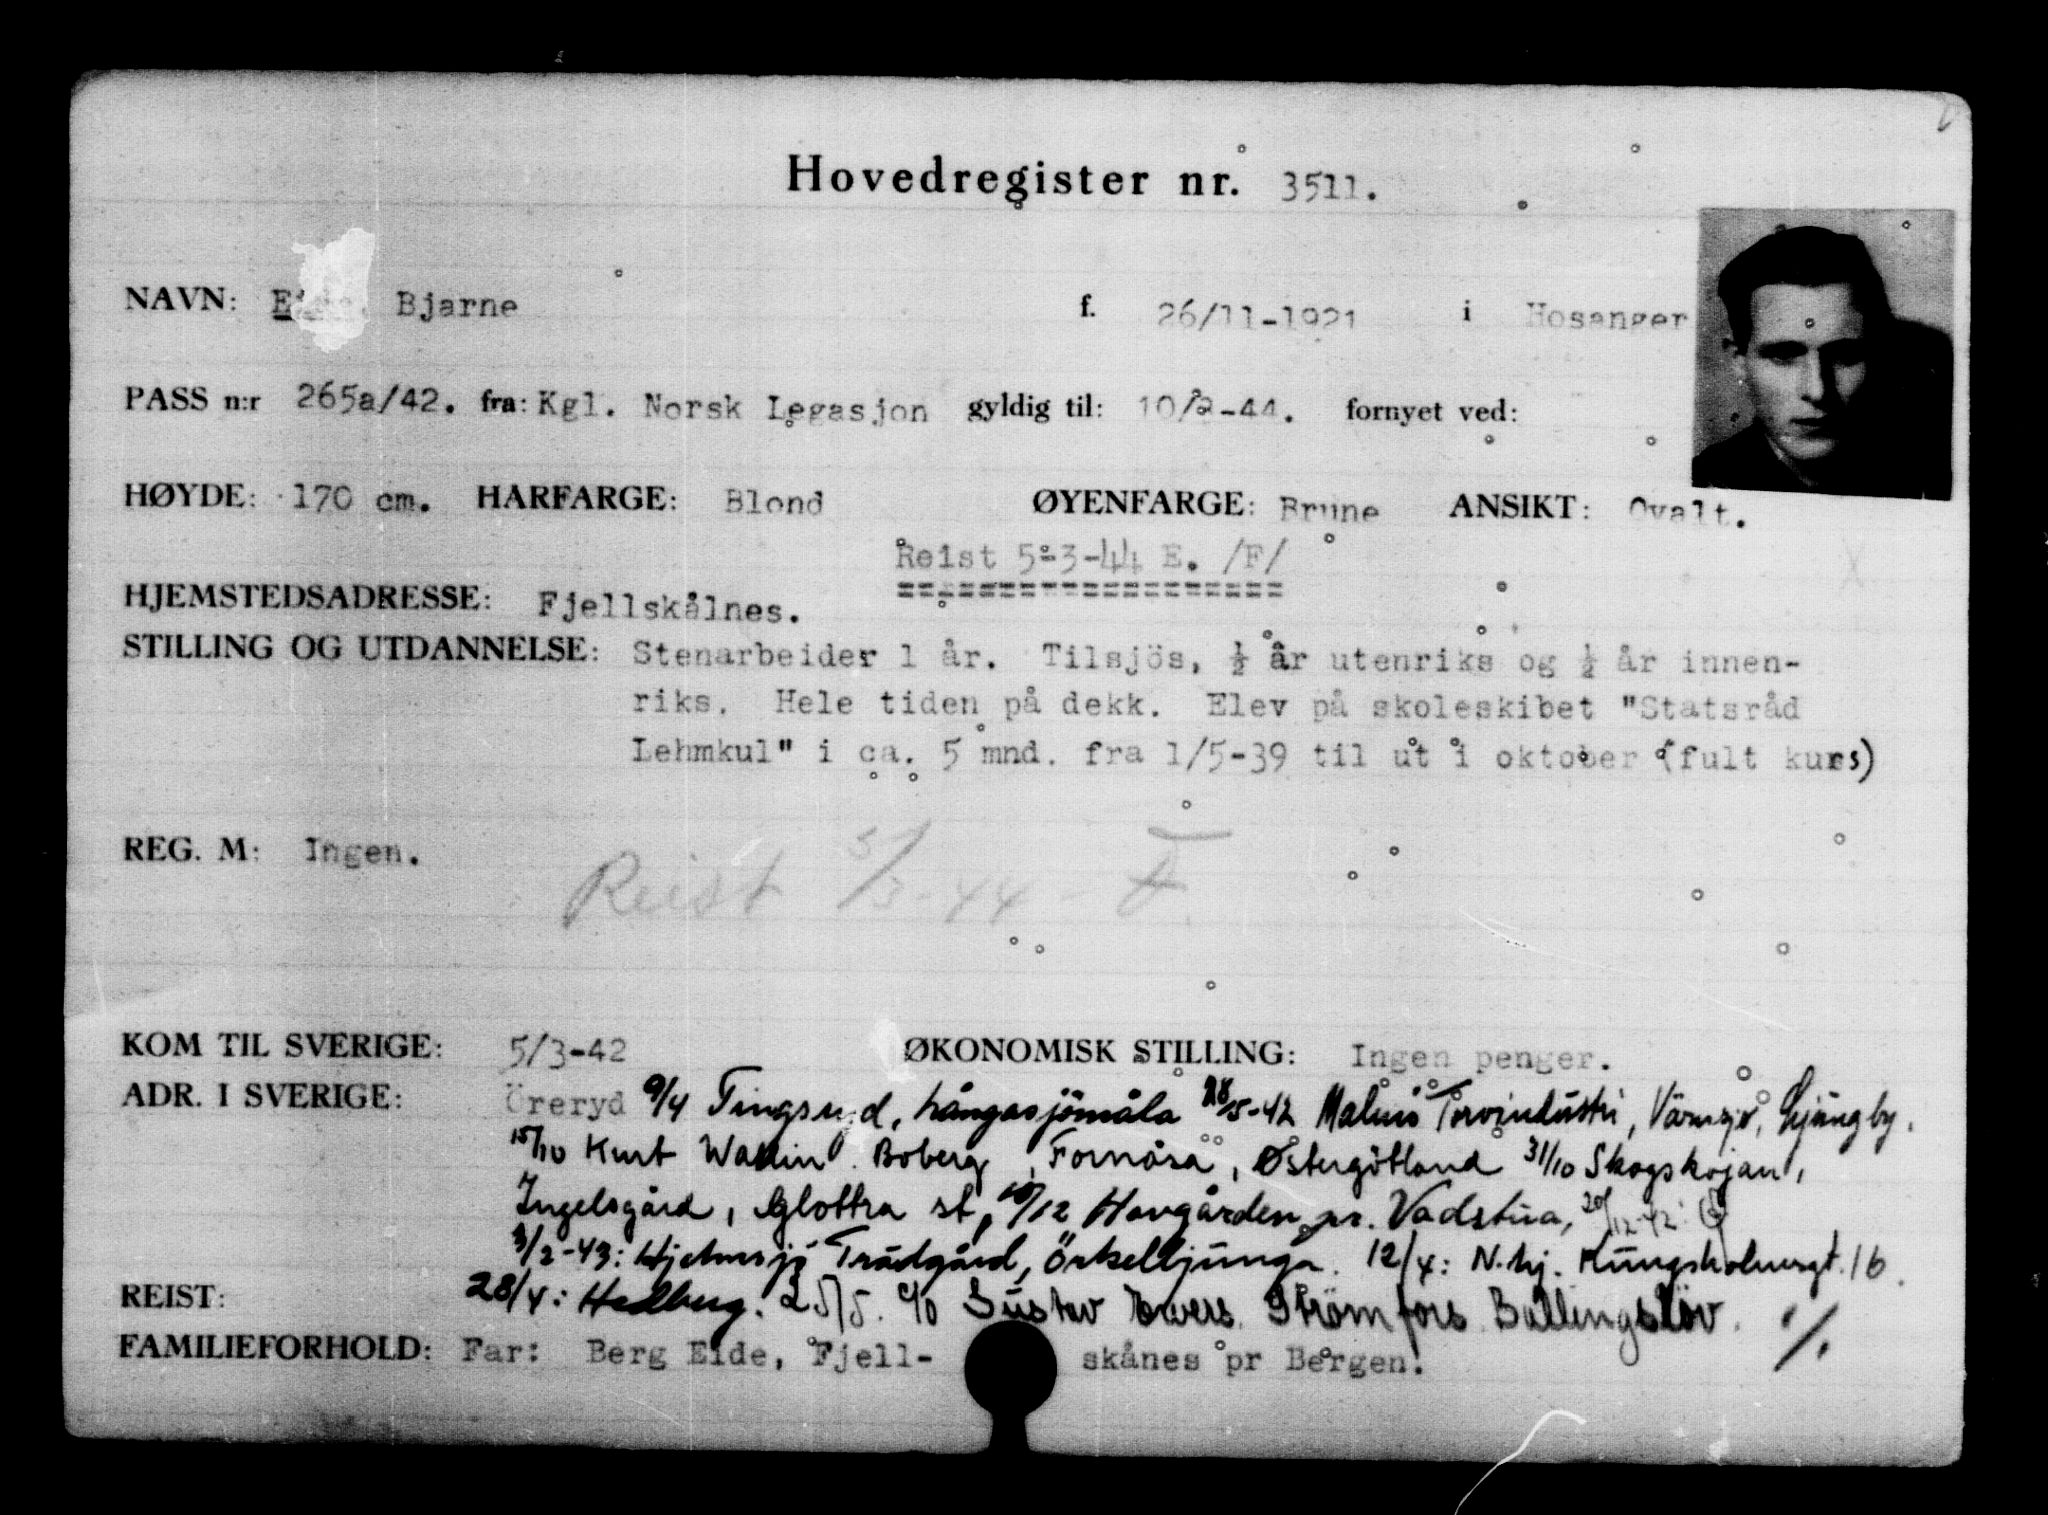 Hovedregister nr. 3511.
NAVN: Bjarne f. 26/11-1921 i Hosanger
PASS n:r 265a/42. fra: Kgl. Norsk Legasjon gyldig til: 10/3-44. fornyet ved:
HØYDE: 170 cm. HARFARGE: Blond ØYENFARGE: Brune ANSIKT: Ovalt.
Reist 5-3-44 E. /F/
HJEMSTEDSADRESSE: Fjellskålnes.
STILLING OG UTDANNELSE: Stenarbeider 1 år. Tilsjös, ½ år utenriks og ½ år innen-
riks. Hele tiden på dekk. Elev på skoleskibet "Statsråd
Lehmkul" i ca. 5 mnd. fra 1/5-39 til ut i oktober (fult kurs)
REG. M: Ingen.
Reist 5/3-44 - F
KOM TIL SVERIGE: 5/3-42 ØKONOMISK STILLING: Ingen penger.
ADR. I SVERIGE: Öreryd 9/4 Tingsryd, Långasjömåla 28/5-42 Malmö Torvindustri, Värnsjö, Ljungby.
15/10 Kurt Wallin. Boberg, Fornåsa, Östergötland 31/10 Skogskojan,
Ingelsgård, Glottra st, 10/12 Hovgården pr. Vadstna, 20/12-42:
3/2-43: Hjelmsjö Trädgård, Örkelljunga. 12/4: N.hj. Kungsholmsgt. 16.
28/4: Hedberg. 25/5. c/o Gustav Ewers. Strömfors Ballingslöv. ./.
REIST:
FAMILIEFORHOLD: Far: Berg Eide, Fjell- skånes pr Bergen.